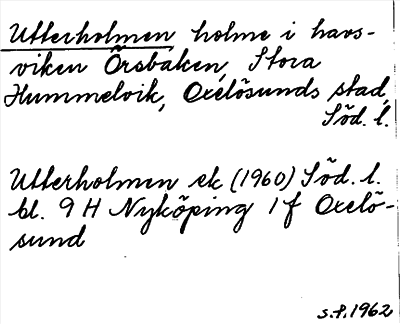 Utterholmen, holme i havs-
viken Örsbaken, Stora
Hummelvik, Oxelösunds stad,
Söd. l.
Utterholmen ek (1960) Söd. l.
bl. 9 H Nyköping 1 f Oxelö-
sund
s.f. 1962